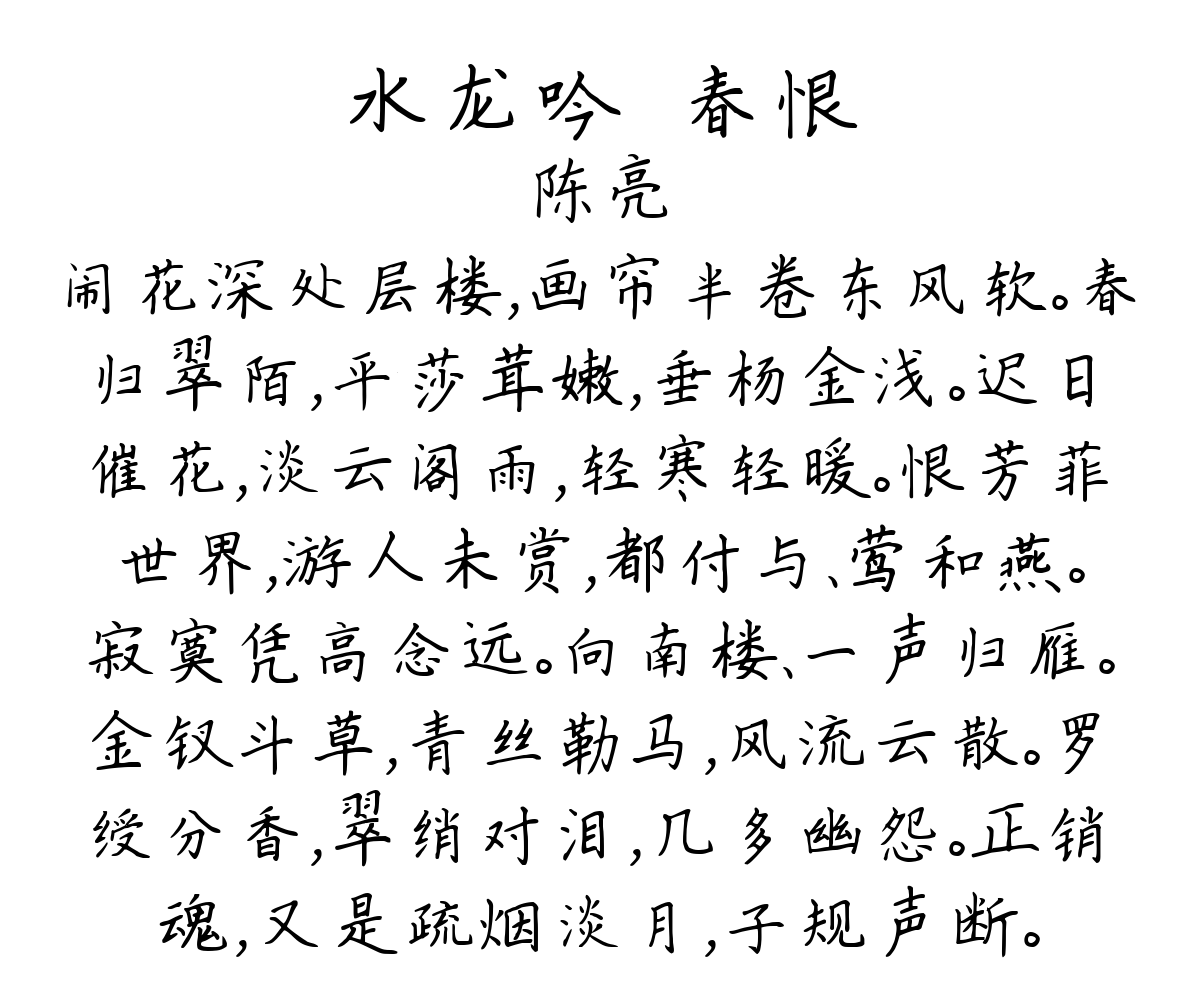 水龙吟 春恨
陈亮
闹花深处层楼,画帘半卷东风软。春
归翠陌,平莎茸嫩,垂杨金浅。迟日
催花,淡云阁雨,轻寒轻暖。恨芳菲
世界,游人未赏,都付与、莺和燕。
寂寞凭高念远。向南楼、一声归雁。
金钗斗草,青丝勒马,风流云散。罗
绶分香,翠绡对泪,几多幽怨。正销
魂,又是疏烟淡月,子规声断。